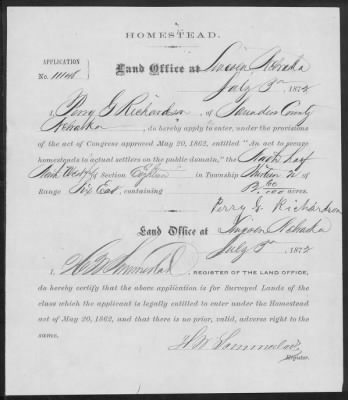 HOMESTEAD.
APPLICATION
No. 11148
Land Office at Lincoln Nebraska
July 3rd 1872
I, Perry G Richardson, of Saunders County
Nebraska, do hereby apply to enter, under the provisions
of the act of Congress approved May 20, 1862, entitled "An act to secure
homesteads to actual settlers on the public domain," the North half
North West 1/4 Section Twelve in Township N of
Range Six East, containing acres.
Perry G. Richardson
Land Office at Lincoln Nebraska
July 3rd 1872
I, REGISTER OF THE LAND OFFICE,
do hereby certify that the above application is for Surveyed Lands of the
class which the applicant is legally entitled to enter under the Homestead
act of May 20, 1862, and that there is no prior, valid, adverse right to the
same.
Register.